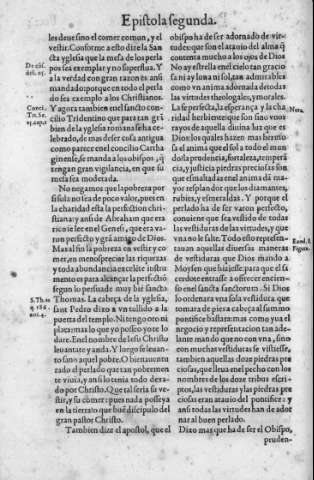 Epistola segunda.
les deue sino el comer comun, y el
vestir. Conforme a esto dize la San
cta yglesia que la mesa de los perla
dos sea exemplar y no superflua. Y
a la verdad con gran razon es ansi
mandado: porque en todo el perla
do sea exemplo a los Christianos.
Y agora tambien en el sancto con
cilio Tridentino que para tan grã
bien de la yglesia romana se ha ce
lebrado, de mas deser cosa antigua
como parece en el concilio Cartha
ginense, se manda a los obispos, q̃
tengan gran vigilancia, en que su
mesa sea moderada.
No negamos que la pobreza por
si sola no sea de poco valor, pues en
la charidad esta la perfectiõ chris-
tiana: y ansi de Abraham que era
rico se lee en el Genesi, que era va-
ron perfecto y grã amigo de Dios.
Mas al fin la pobreza en vestir y co
mer, en menospreciar las riquezas
y toda abundancia excelẽte instru
mento es para alcançar la perfectiõ
segun lo persuade muy biẽ sancto
Thomas. La cabeça de la yglesia,
sant Pedro dixo a vn tollido a la
puerta del templo. Ni tengo oro ni
plata: mas lo que yo posseo yo te lo
dare. En el nombre de Iesu Christo
leuantate y anda. Y luego se leuan-
to sano aquel pobre. O bienauentu
rado el perlado que tan pobremen
te viuia, y ansi lo tenia todo dexa-
do por Christo. Que tal seria su ve-
stir, y su comer: pues nada posseya
en la tierra el que fue discipulo del
gran pastor Christo.
Tambien dize el apostol, que el
De cõf.
dist. 25.
Conci.
Tri. Se.
25. cap. 1
S. Th. 22
q. 184.
art. 3.
obispo ha de ser adornado de vir-
tudes: que son el atauio del alma q̃
contenta mucho a los ojos de Dios
No ay estrella en el cielo tan gracio
sa ni ay luna ni sol, tan admirables
como vn anima adornada de todas
las virtudes theologales, y morales.
La fe perfecta, la esperança y la cha
ridad heruiente que son sino vnos
rayos de aquella diuina luz que es
Dios: los quales hazen mas hermo
sa el anima que el sol a todo el mun
do: la prudencia, fortaleza, temperã
cia, y iusticia piedras preciosas son
que esmaltadas en el anima dã ma-
yor resplandor que los diamantes,
rubies, y esmeraldas. Y porque el
perlado ha de ser varon perfecto,
conuiene que sea vestido de todas
las vestiduras de las virtudes, y que
vna no le falte. Todo esto represen-
tauan aquellas diuersas maneras
de vestiduras que Dios mando a
Moysen que hiziesse para que el sa
cerdote entrasse a ofrecer encien-
so en el sancta sanctorum. Si Dios
lo ordenara vna sola vestidura que
tomara de pieça cabeça al summo
pontifice bastara: mas como yua el
negocio y representacion tan ade-
lante mando que no con vna, sino
con muchas vestiduras se vistiesse,
tambien aquellas doze piedras pre
ciosas, que lleua en el pecho con los
nombres de los doze tribus escri-
ptos, las vestiduras y las piedras pre
ciosas eran atauio del pontifice: y
ansi todas las virtudes han de ador
nar al buen perlado.
Dizo mas que ha de ser el Obispo,
pruden-
Nota.
Exod. 28
Figura.